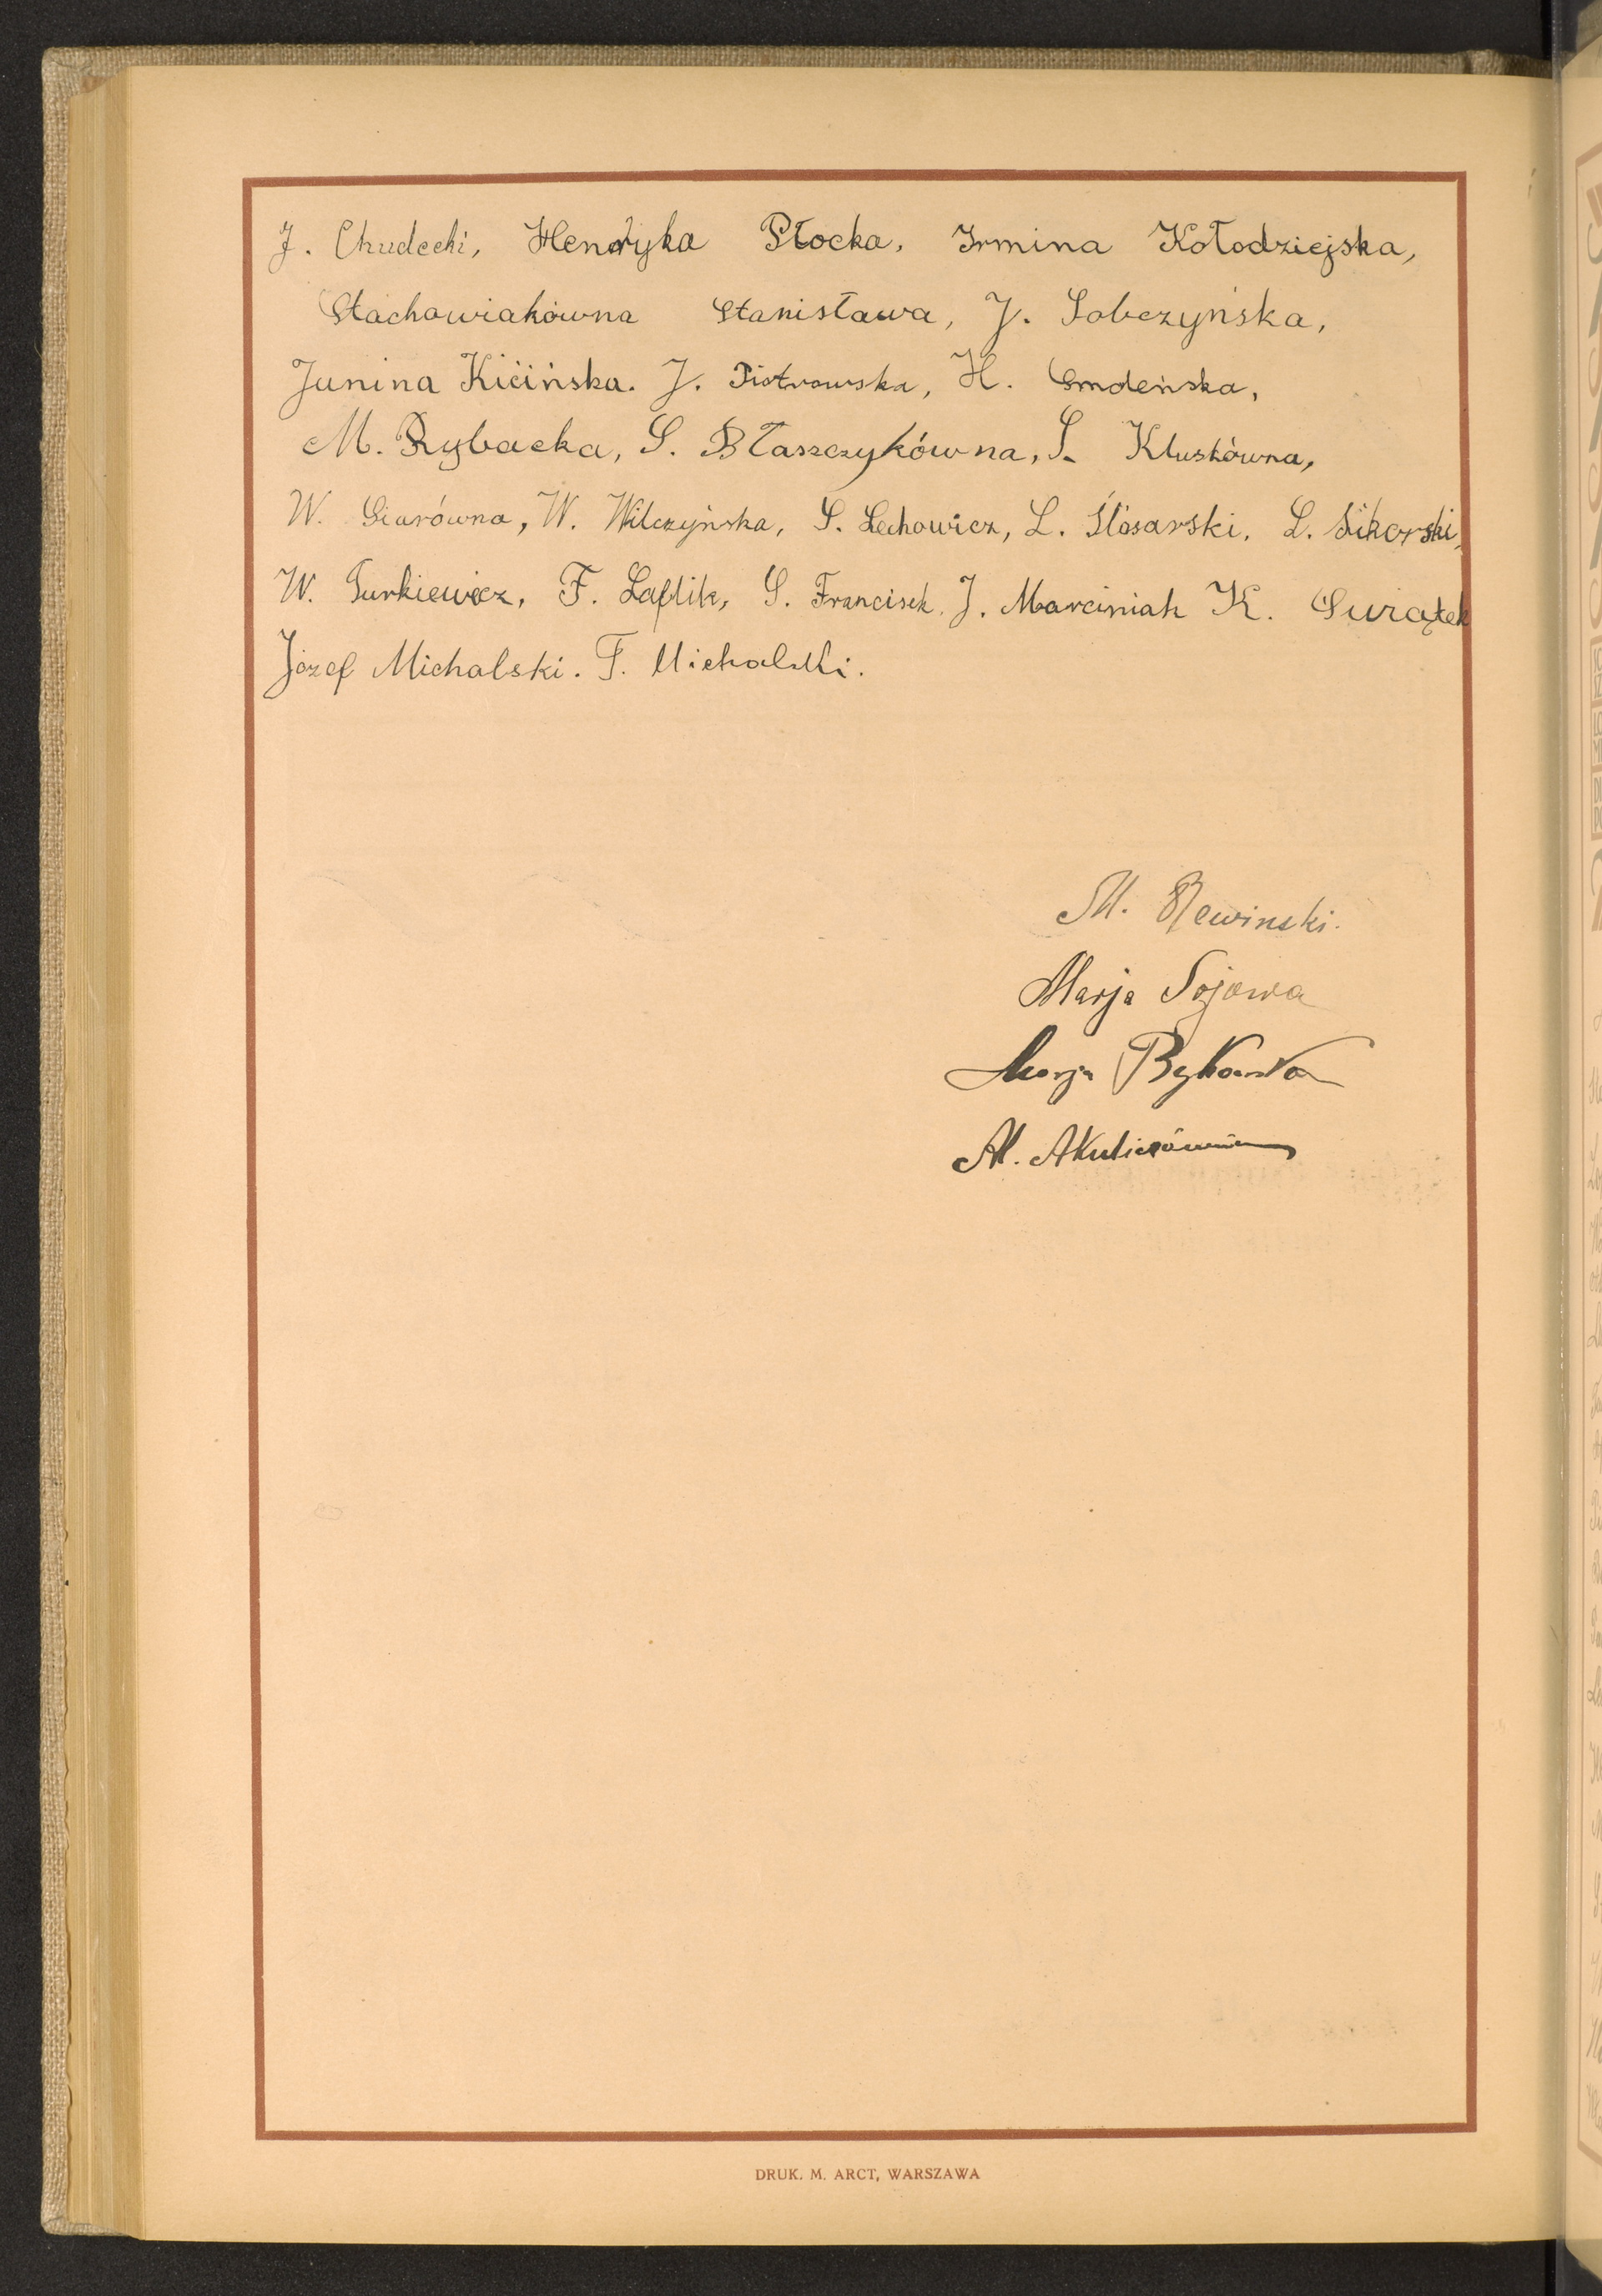 J. Chudecki, Henryka Płocka, Irmina Kołodziejska,
Stachowiakówna Stanisława, J. Sobczyńska,
Janina Kicińska. J. Piotrowska, H. Smoleńska,
M. Rybacka, S. Błaszczykówna, S. Kluskówna,
W. Siarówna, W. Wilczyńska, S. Lechowicz, L. Ślosarski, L. Sikorski,
W. Turkiewicz, F. Laflik, S. Francisek, J. Marciniak K. Swiątek
Józef Michalski. F. Michalski.
M. Rewinski.
Marja Sojowa
Marja Bykowska
M. Akuliczówna
DRUK. M. ARCT, WARSZAWA